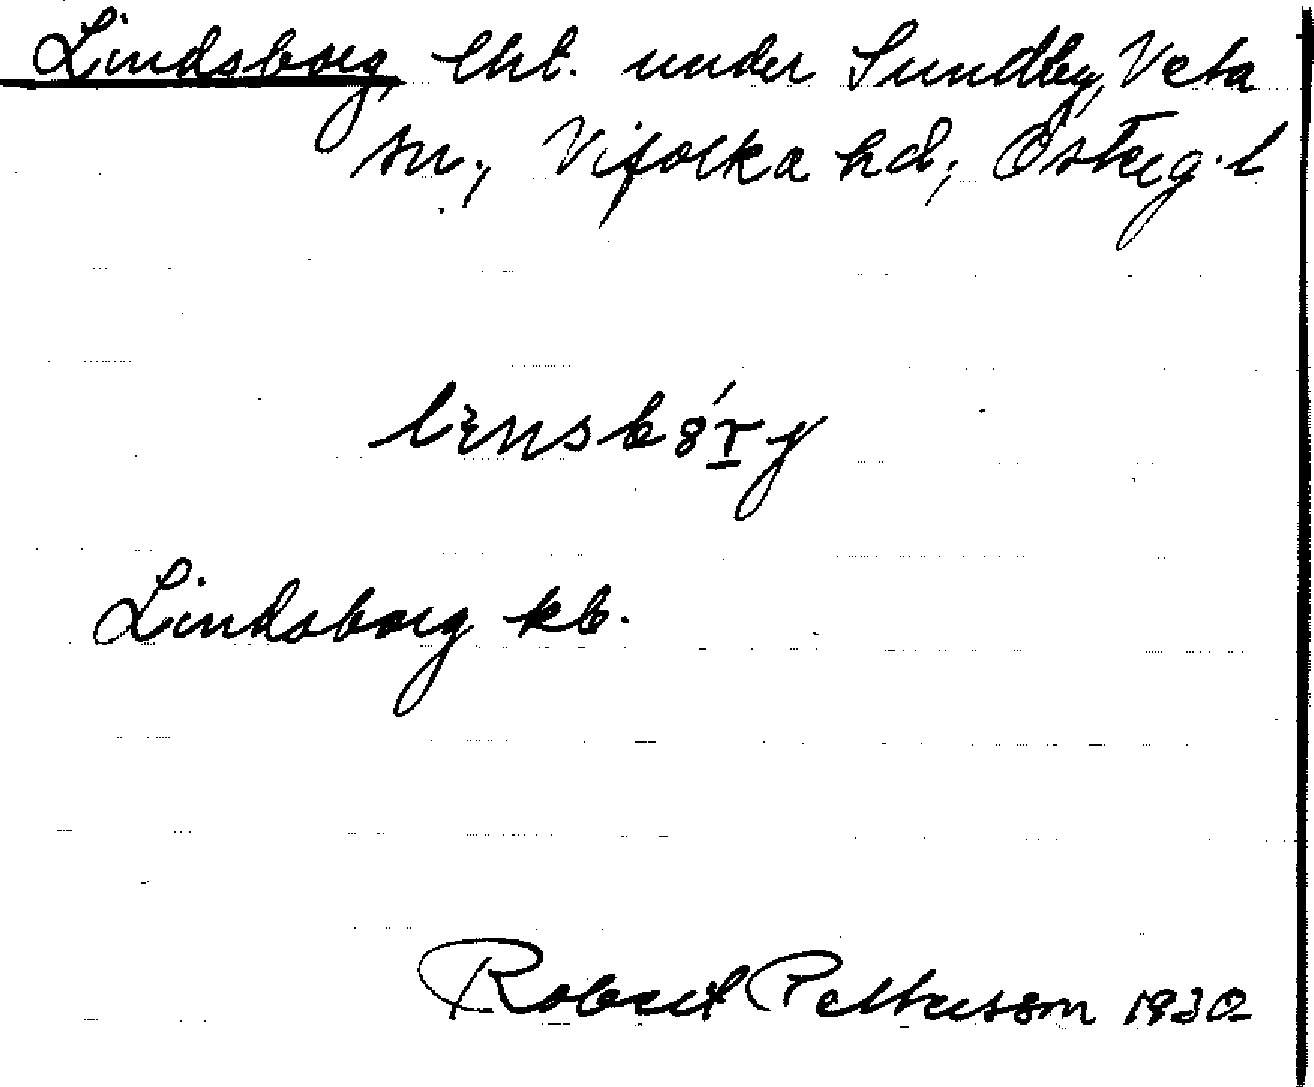 Lindsborg, lht. under Sundby, Veta
sn., Vifolka hd, Österg. l
Lindsborg kb.
Robert Pettersson 1930